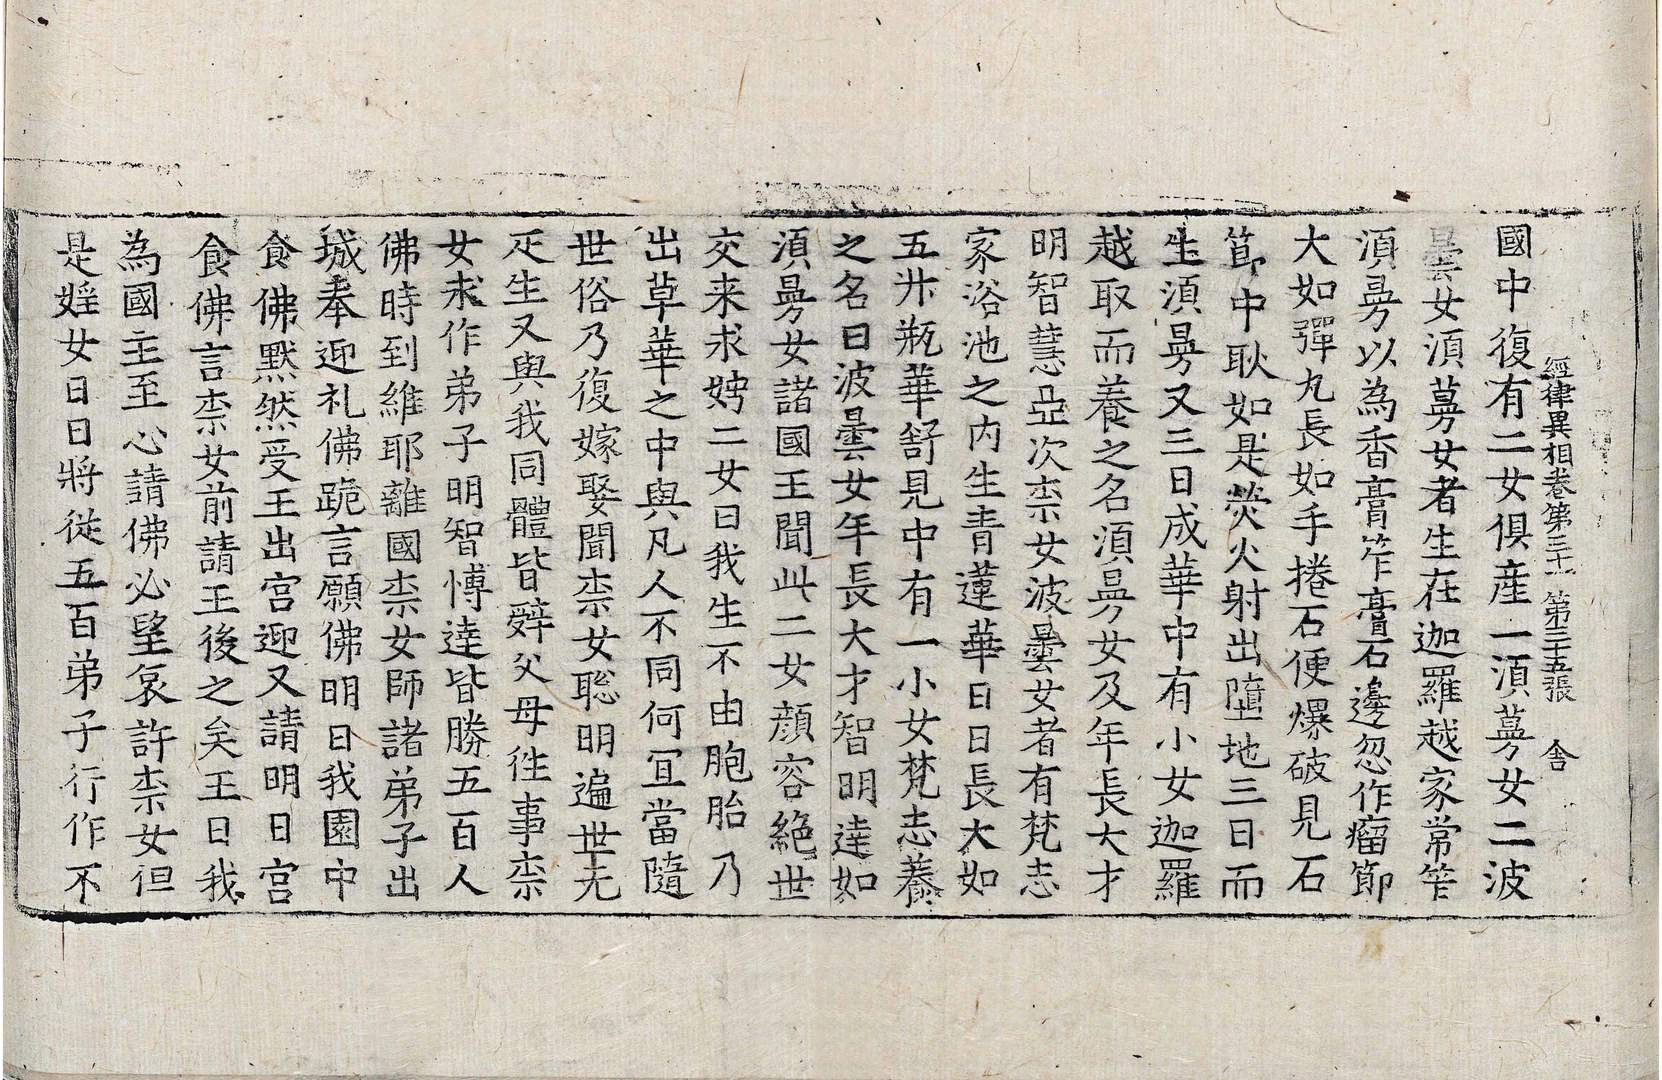 經律異相卷第三十一 第三十五張 舍
國中復有二女俱産一湏蒡女二波
曇女湏蒡女者生在迦羅越家常笮
湏蒡以為香膏笮膏石邊忽作瘤節
大如彈丸長如手捲石便爆破見石
節中耿如是熒火射出墮地三日而
生湏蒡又三日成華中有小女迦羅
越取而養之名湏蒡女及年長大才
明智慧亞次柰女波曇女者有梵志
家浴池之内生青蓮華日日長大如
五升瓶華舒見中有一小女梵志養
之名曰波曇女年長大才智明達如
湏蒡女諸國王聞此二女顔容絶世
交来求娉二女曰我生不由胞胎乃
出草華之中與凡人不同何冝當隨
世俗乃復嫁娶聞柰女聡明遍世无
疋生又與我同體皆辤父母徃事柰
女求作弟子明智愽達皆勝五百人
佛時到維耶離國柰女師諸弟子出
城奉迎礼佛跪言願佛明日我園中
食佛黙然受王出宫迎又請明日宫
食佛言柰女前請王後之矣王曰我
為國主至心請佛必望哀許柰女但
是婬女日日將従五百弟子行作不